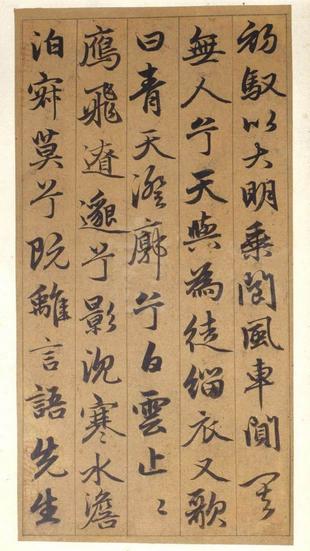 初馭以大明乘閬風車闃其
無人兮天與為徒緇衣又歌
曰青天澄廓兮白雲止〻
鷹飛遼邈兮影沉寒水澹
泊寂莫兮既離言語先生